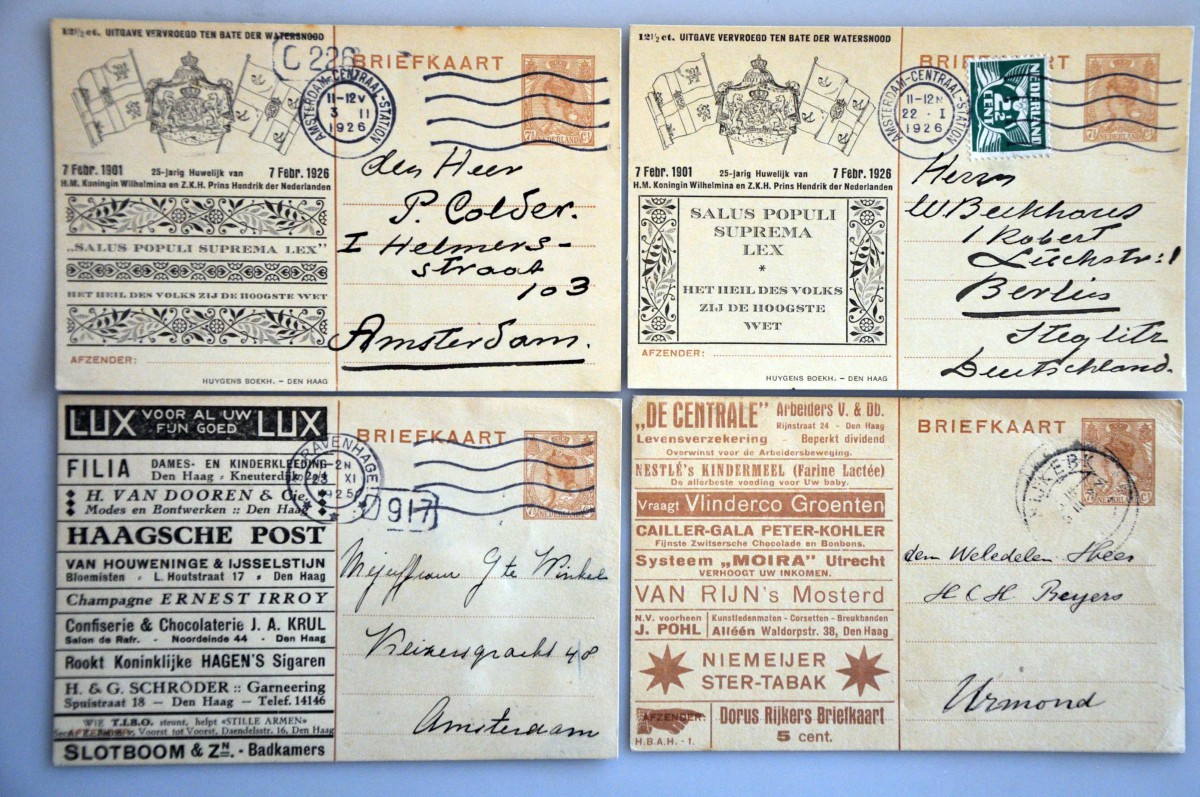 12½ ct. UITGAVE VERVROEGD TEN BATE DER WATERSNOOD
C 226
BRIEFKAART
AMSTERDAM-CENTRAAL-STATION
11-12 V
3 II
1926
7½ Ct
NEDERLAND
7 Febr. 1901 25-jarig Huwelijk van 7 Febr. 1926
H.M. Koningin Wilhelmina en Z.K.H. Prins Hendrik der Nederlanden
„SALUS POPULI SUPREMA LEX"
HET HEIL DES VOLKS ZIJ DE HOOGSTE WET
AFZENDER:
HUYGENS BOEKH. – DEN HAAG
den Heer
P. Colder.
I Helmers-
straat
103
Amsterdam.
12½ ct. UITGAVE VERVROEGD TEN BATE DER WATERSNOOD
BRIEFKAART
AMSTERDAM-CENTRAAL-STATION
11-12 N
22 - I
1926
NEDERLAND
2½
CENT
7 Febr. 1901 25-jarig Huwelijk van 7 Febr. 1926
H.M. Koningin Wilhelmina en Z.K.H. Prins Hendrik der Nederlanden
SALUS POPULI
SUPREMA
LEX
*
HET HEIL DES VOLKS
ZIJ DE HOOGSTE
WET
AFZENDER:
HUYGENS BOEKH. – DEN HAAG
Herrn
W Beckhaus
1 Robert
Lückstr: 1
Berlin
Steglitz
Deutschland.
LUX VOOR AL UW FIJN GOED LUX
FILIA DAMES- EN KINDERKLEEDING
Den Haag - Kneuterdijk
H. VAN DOOREN & Cie
Modes en Bontwerken :: Den Haag
HAAGSCHE POST
VAN HOUWENINGE & IJSSELSTIJN
Bloemisten - L. Houtstraat 17 - Den Haag
Champagne ERNEST IRROY
Confiserie & Chocolaterie J. A. KRUL
Salon de Rafr. - Noordeinde 44 - Den Haag
Rookt Koninklijke HAGEN'S Sigaren
H. & G. SCHRÖDER :: Garneering
Spuistraat 18 — Den Haag — Telef. 14146
WIE T.I.B.O. steunt, helpt «STILLE ARMEN»
Voorst tot Voorst, Daendelsstr. 16, Den Haag
AFZENDER:
SLOTBOOM & ZN. - Badkamers
BRIEFKAART
'S GRAVENHAGE
-2N
23 XI
1925
917
7½ Ct
NEDERLAND
Mejuffrouw G te Winkel
Keizersgracht 48
Amsterdam
„DE CENTRALE" Arbeiders V. & Db.
Rijnstraat 24 - Den Haag
Levensverzekering - Beperkt dividend
Overwinst voor de Arbeidersbeweging.
NESTLÉ's KINDERMEEL (Farine Lactée)
De allerbeste voeding voor Uw baby.
Vraagt Vlinderco Groenten
CAILLER-GALA PETER-KOHLER
Fijnste Zwitsersche Chocolade en Bonbons.
Systeem „MOIRA" Utrecht
VERHOOGT UW INKOMEN.
VAN RIJN's Mosterd
N.V. voorheen J. POHL
Kunstledenmaten - Corsetten - Breukbanden
Alléén Waldorpstr. 38, Den Haag
NIEMEIJER
STER-TABAK
AFZENDER:
Dorus Rijkers Briefkaart
5 cent.
H.B.A.H. - 1.
BRIEFKAART
NIJKERK
den Weledelen Heer
H C H Beyers
Urmond